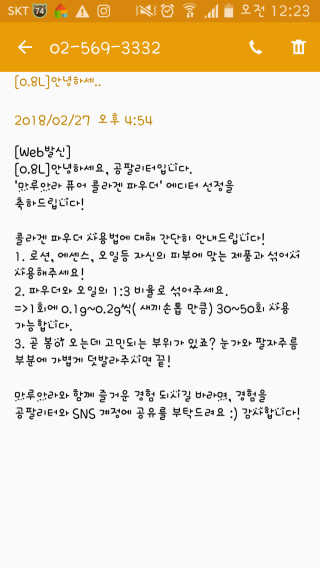 SKT 74 오전 12:23
02-569-3332
[0.8L]안녕하세..
2018/02/27 오후 4:54
[Web발신]
[0.8L]안녕하세요, 공팔리터입니다.
'만루완라 퓨어 콜라겐 파우더' 에디터 선정을
축하드립니다!
콜라겐 파우더 사용법에 대해 간단히 안내드립니다!
1. 로션, 에센스, 오일등 자신의 피부에 맞는 제품과 섞어서
사용해주세요!
2. 파우더와 오일의 1:3 비율로 섞어주세요.
=>1회에 0.1g~0.2g씩( 새끼손톱 만큼) 30~50회 사용
가능합니다.
3. 곧 봄이 오는데 고민되는 부위가 있죠? 눈가와 팔자주름
부분에 가볍게 덧발라주시면 끝!
만루완라와 함께 즐거운 경험 되시길 바라며, 경험을
공팔리터와 SNS 계정에 공유를 부탁드려요 :) 감사합니다!